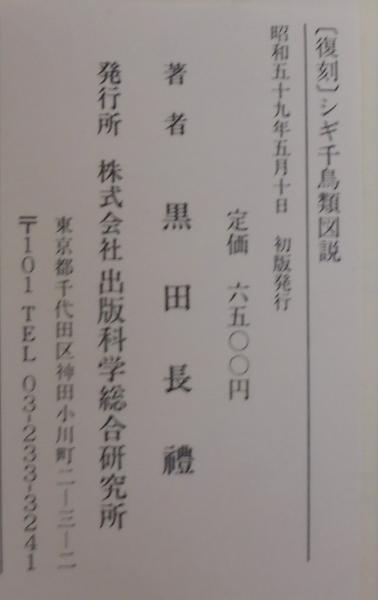 〔復刻〕シギ千鳥類図説
昭和五十九年五月十日 初版発行
定価 六五〇〇円
著者 黒田長禮
発行所 株式会社出版科学総合研究所
東京都千代田区神田小川町二―三―二
〒101 TEL 03-233-3241